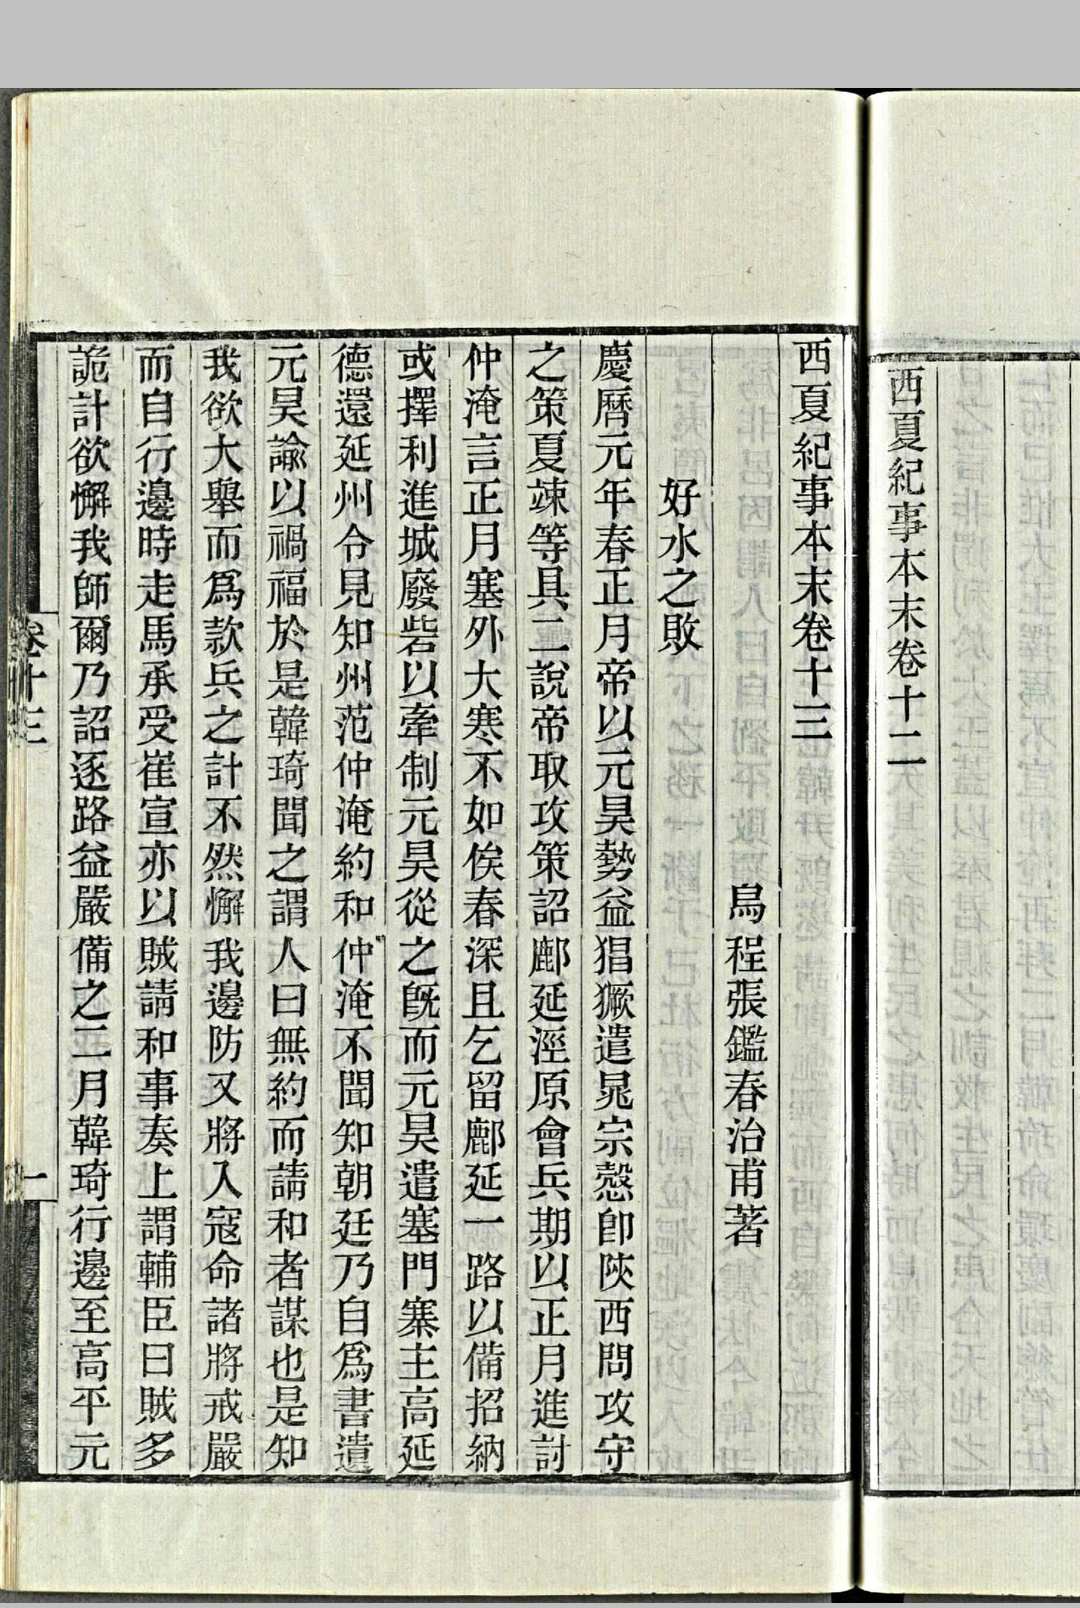 西夏紀事本末卷十二
西夏紀事本末卷十三
烏程張鑑春治甫著
好水之敗
慶曆元年春正月帝以元昊勢益猖獗遣晁宗慤卽陝西問攻守
之策夏竦等具二說帝取攻策詔鄜延涇原會兵期以正月進討
仲淹言正月塞外大寒不如俟春深且乞留鄜延一路以備招納
或擇利進城廢砦以牽制元昊從之旣而元昊遣塞門寨主高延
德還延州令見知州范仲淹約和仲淹不聞知朝廷乃自爲書遣
元昊諭以禍福於是韓琦聞之謂人曰無約而請和者謀也是知
我欲大舉而爲款兵之計不然懈我邊防又將入寇命諸將戒嚴
而自行邊時走馬承受崔宣亦以賊請和事奏上謂輔臣曰賊多
詭計欲懈我師爾乃詔逐路益嚴備之二月韓琦行邊至高平元
卷十三
一